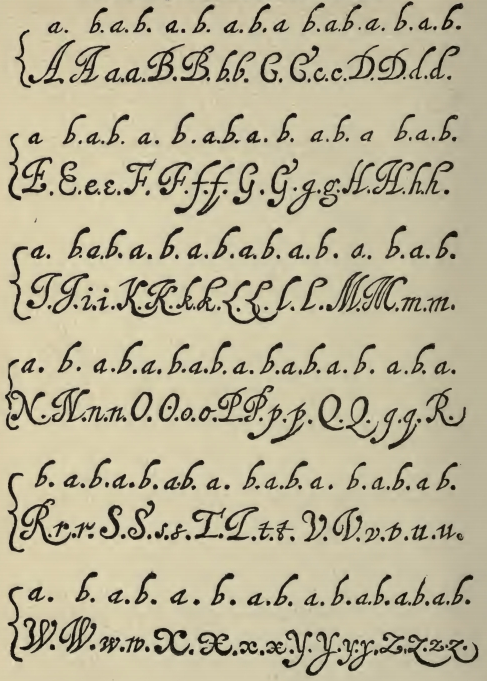 a. b.a.b. a. b. a.b.a b.a.b.a. b.a.b.
A A a.a.B.B.b.b. C. C.c.c.D.D.d.d.
a b.a.b. a. b.a.b.a. b. a.b. a b.a.b.
E. E.e.e.F. F.f.f. G. G.g.g.H.H.h.h.
a. b.a.b.a.b.a.b.a.b.a.b. a. b.a.b.
I.I.i.i.K.K.k.k.L.L.l.l.M.M.m.m.
a. b. a.b.a.b.a.b.a.b.a.b.a.b. a.b.a.
N.N.n.n.O.O.o.o.P.P.p.p.Q.Q.q.q.R
b. a.b.a.b.a.b.a b a. b.a.b.a. b.a.b.a b.
R.r.r.S.S.s.s.T.T.t.t. V.V.v.v.u.u.
a. b. a.b. a. b. a. b. a.b.a.b.a.b.a.b.
W.W.w.w.X.X.x.x.Y.Y.y.y.Z.Z.z.z.